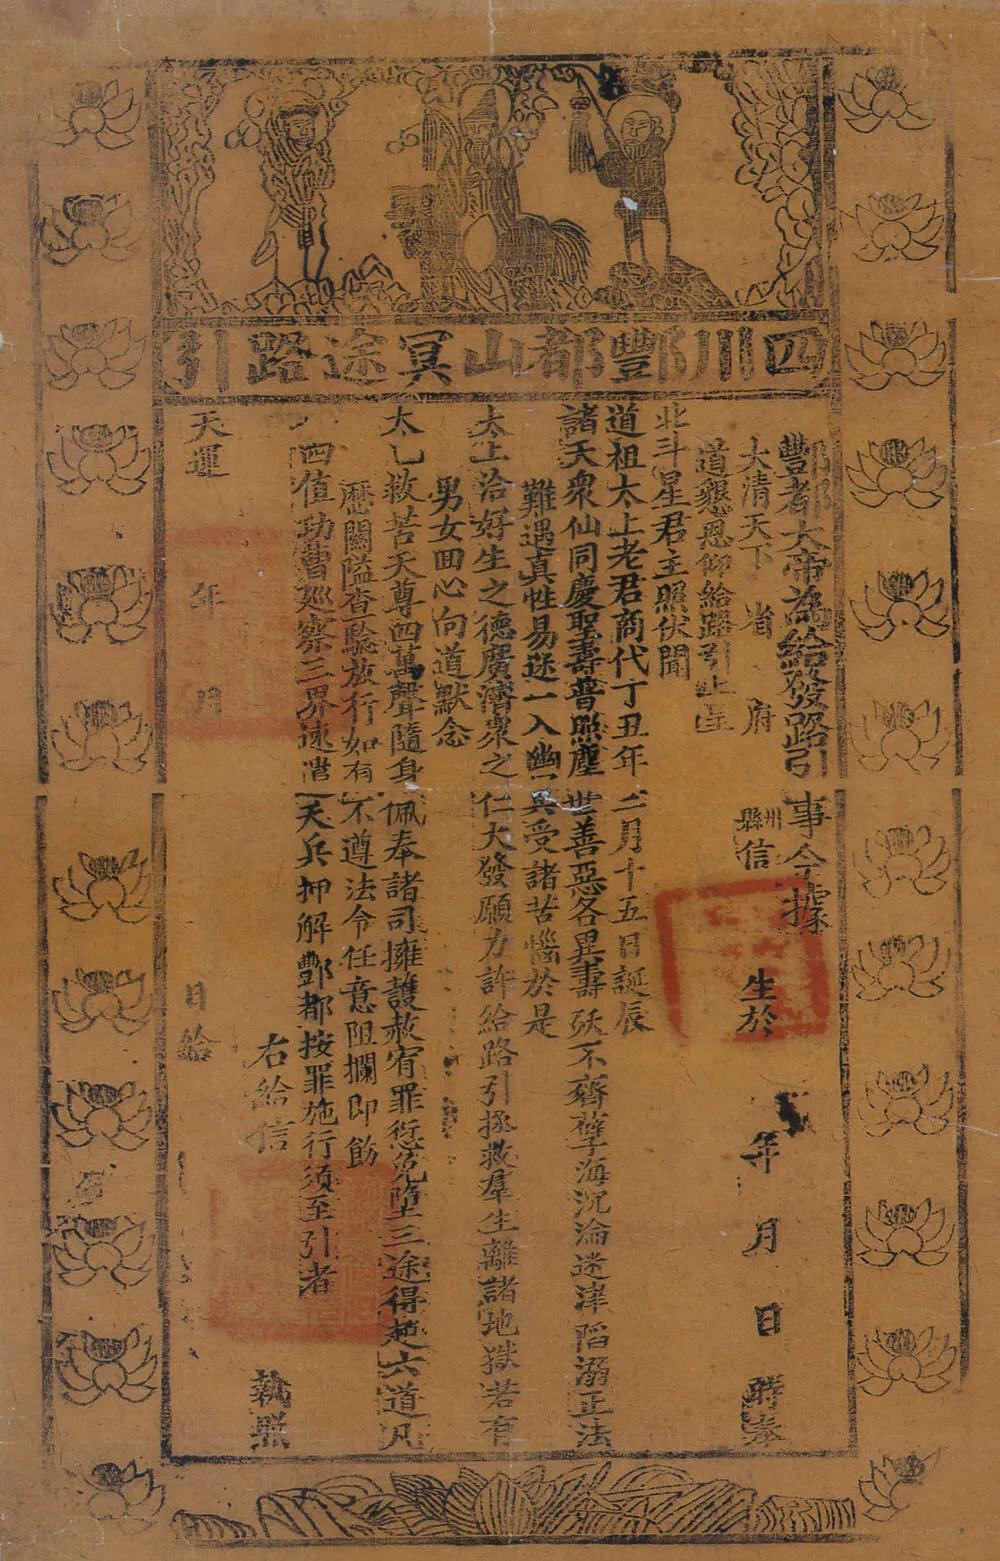 四川酆都山冥途路引
酆都大帝為給發路引事今據
大清天下 省 府 州縣信 生於 年 月 日 時奉
道懇恩仰給路引上呈
北斗星君主照伏聞
道祖太上老君商代丁丑年二月十五日誕辰
諸天眾仙同慶聖壽普照塵世善惡各異壽殀不齊孽海沉淪迷津陷溺正法
難遇真性易迷一入幽冥受諸苦惱於是
太上洽好生之德廣濟眾之仁大發願力許給路引拯救羣生離諸地獄若有
男女回心向道默念
太乙救苦天尊四萬聲隨身佩奉諸司擁護赦宥罪愆免墮三途得超六道凡
歷關隘查驗放行如有不遵法令任意阻攔即飭
四值功曹廵察三界速遣天兵押解酆都按罪施行須至引者
右給信 執照
天運 年 月 日給